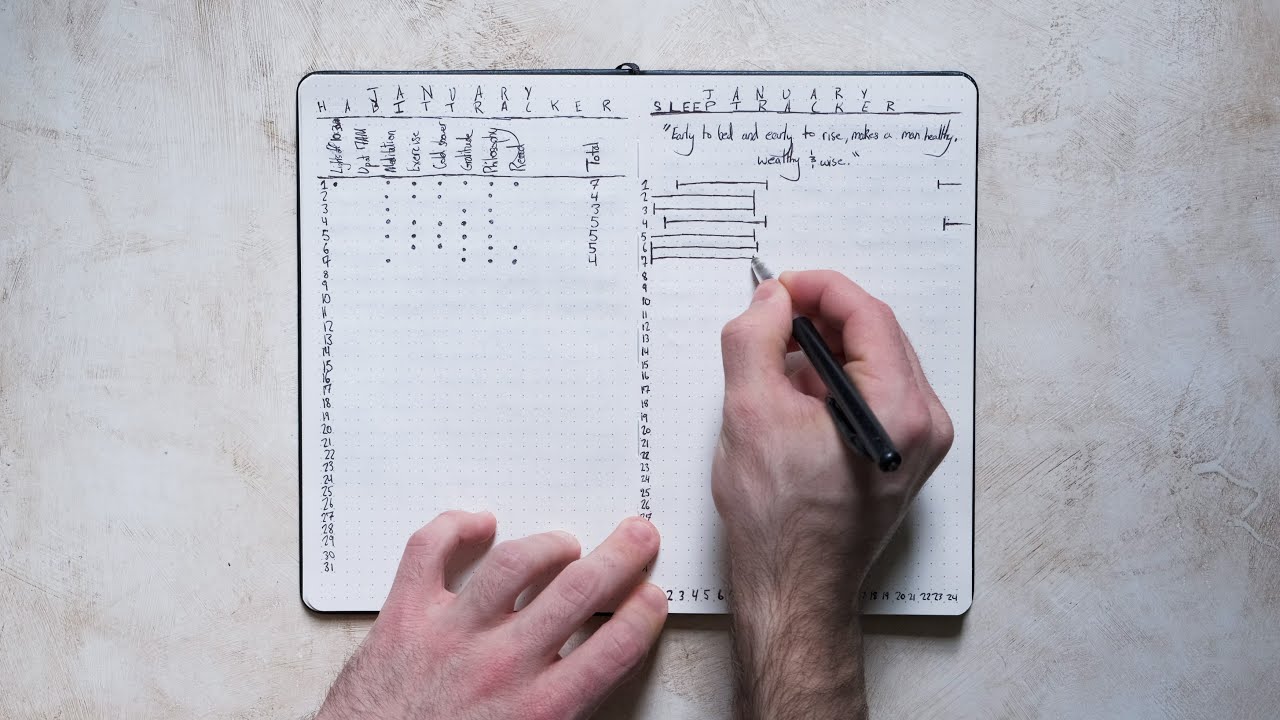 JANUARY
HABIT TRACKER
Lights @ 10:30
Meditation
Exercise
Cold shower
Gratitude
Philosophy
Read
Total
1 7
2 4
3 3
4 5
5 5
6 5
7 4
8
9
10
11
12
13
14
15
16
17
18
19
20
21
22
23
24
25
26
27
28
29
30
31
JANUARY
SLEEP TRACKER
"Early to bed and early to rise, makes a man healthy,
wealthy & wise."
1
2
3
4
5
6
7
8
9
10
11
12
13
14
15
16
17
18
19
20
21
22
23
24
25
26
27
2 3 4 5 6 18 19 20 21 22 23 24